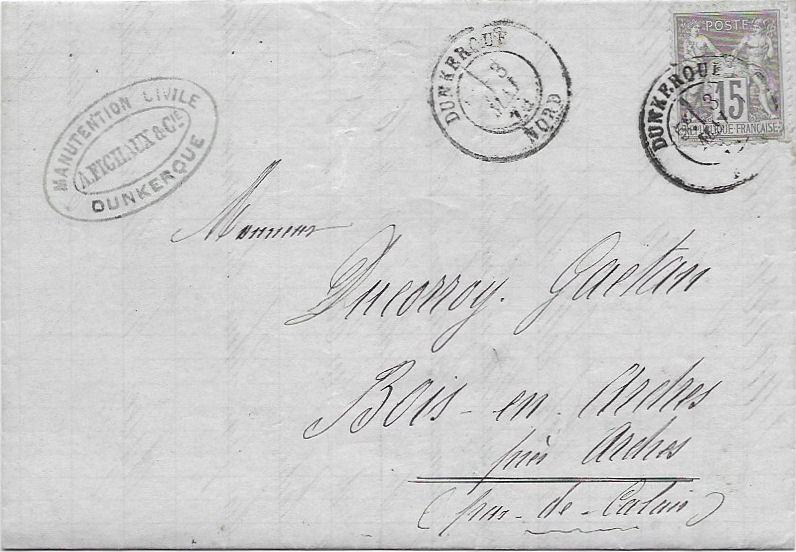 MANUTENTION CIVILE
A. FICHAUX & CIE
DUNKERQUE
DUNKERQUE
3
NORD
POSTE
15
RÉPUBLIQUE FRANÇAISE
DUNKERQUE
3
Monsieur
Ducorroy. Gaetan
Bois-en-Ardres
près Ardres
(pas-de-Calais)